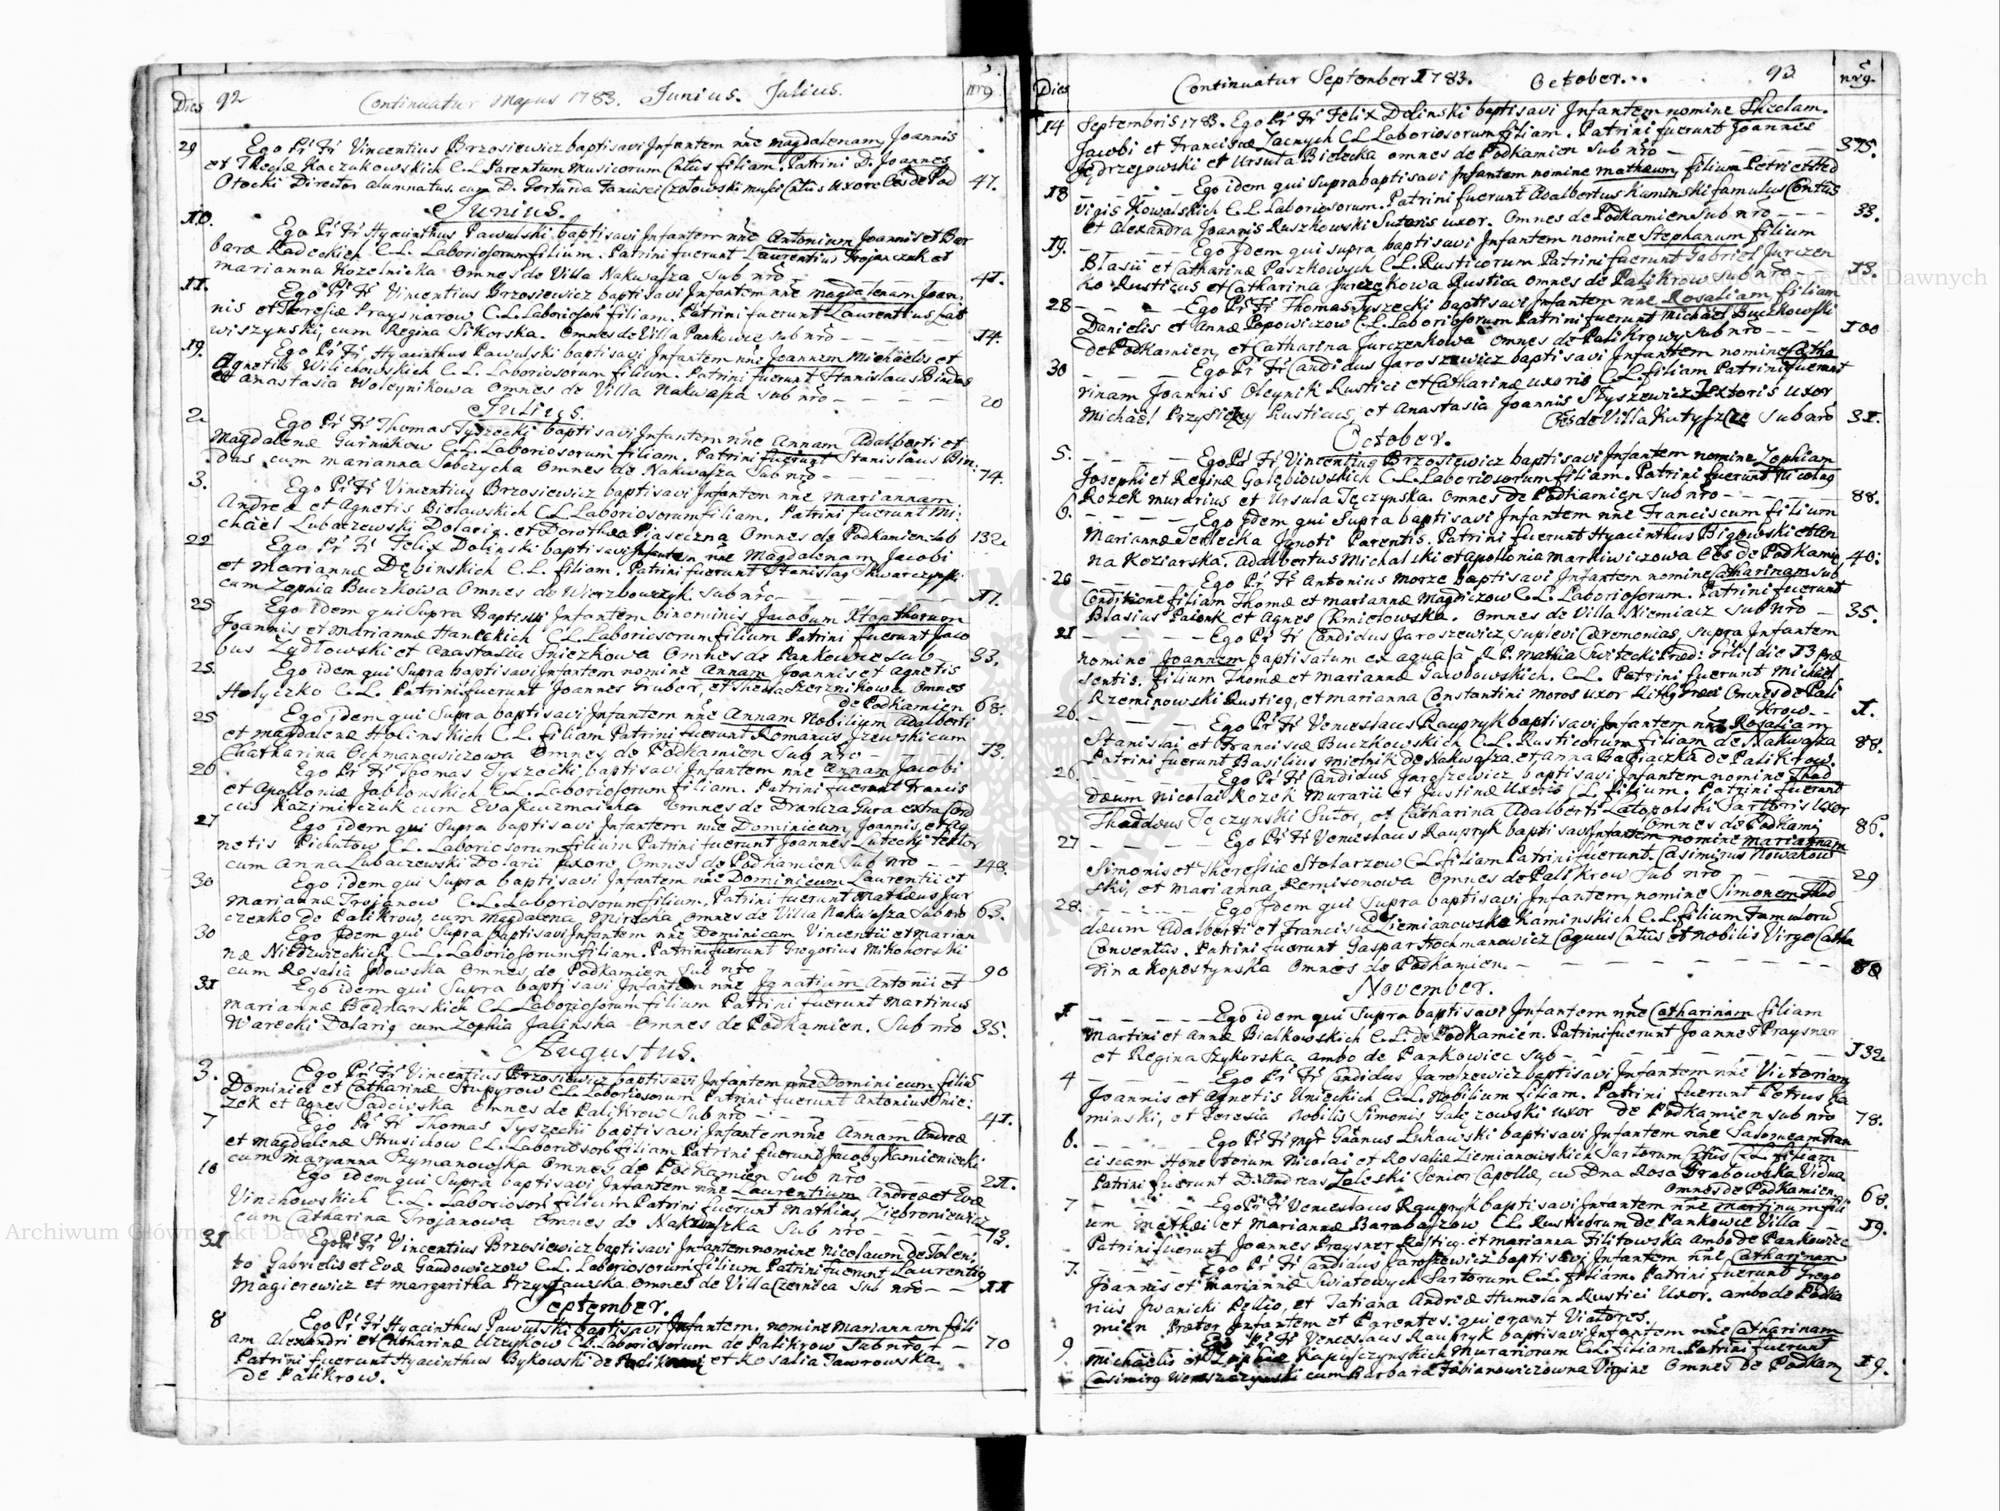 Dies 92 Continuatur Majus 1783. Junius. Julius. nrg
29 Ego Pr Fr Vincentius Brzosiewicz baptisavi Infantem nne Magdalenam Joannis
et Theclæ Kaczukowskich C.L. Parentum Musicorum Cntus filiam. Patrini D. Joannes
Otocki Director alumnatus, cum D. uxore Oes de Pod 47.
Junius.
10. Ego Pr Fr Hyacinthus Pawulski baptisavi Infantem nne Antonium Joannis et Bar
baræ Radeckich C.L. Laboriosorum filium. Patrini fuerunt Laurentius Trojanczuk et
Marianna Kozelnicka Omnes de Villa Nakwasza sub nro 41.
11. Ego Pr Fr Vincentius Brzosiewicz baptisavi Infantem nne Magdalenam Joan-
nis et Theresiæ Praysnarow C.L. Laborioson filiam. Patrini fuerunt Laurentius Lat
wiszynski, cum Regina Sikorska. Omnes de Villa Pankowce sub nro 14.
19. Ego Pr Fr Hyacinthus Pawulski baptisavi Infantem nne Joannem Michaelis et
Agnetis Wilichowskich C.L. Laboriosorum filium. Patrini fuerunt Stanislaus Bindas
et Anastasia Woleynikowa Omnes de Villa Nakwasza sub nro 20
Julius.
2. Ego Pr Fr Thomas Tyszecki baptisavi Infantem nne Annam Adalberti et
Magdalenæ Gurniakow C.L. Laboriosorum filiam. Patrini fuerunt Stanislaus Bin-
das cum Marianna Sobczycha Omnes de Nakwasza sub nro 74.
3. Ego Pr Fr Vincentius Brzosiewicz baptisavi Infantem nne Mariannam
Andreæ et Agnetis Bielawskich C.L. Laboriosorum filiam. Patrini fuerunt Mi-
chael Lubaczewski Dolariq. et Dorothea Piaseczna Omnes de Podkamien sub 132
22 Ego Pr Fr Felix Dolinski baptisavi Infantem nne Magdalenam Jacobi
et Mariannæ Dębinskich C.L. filiam. Patrini fuerunt Stanislaq Skwarczynski
cum Zophia Buczkowa Omnes de Wierzbowczyk sub nro 17.
25 Ego idem qui Supra Baptisavi Infantem binominis Jacobum Xtophorum
Joannis et Mariannæ Haneckich C.L. Laboriosorum filium Patrini fuerunt Jaco
bus Zydlowski et Anastasia Snieczkowa Omnes de Pankowce sub 33.
25. Ego idem qui Supra baptisavi Infantem nomine Annam Joannis et Agnetis
Holyczko C.L. Patrini fuerunt Joannes Gruber, et Omnes
de Podkamien 68.
25 Ego idem qui Supra baptisavi Infantem nne Annam Nobilium Adalberti
et Magdalenæ Holinskich C.L. filiam Patrini fuerunt Romanus Jzewski cum
Chatharina Ochmanowiczowa Omnes de Podkamien sub nro 13.
26 Ego Pr Fr Thomas Tyszecki baptisavi Infantem nne Annam Jacobi
et Apolloniæ Jablonskich C.L. Laboriosorum filiam. Patrini fuerunt Francis
cus Kazimirczuk cum Eva Kuzmaicha Omnes de Drancza Gura extra Cord
27 Ego idem qui Supra baptisavi Infantem nne Dominicum Joannis et Ag
netis Pichutow C.L. Laboriosorum filium Patrini fuerunt Joannes Lutecky textor
cum Anna Lubaczewski Dolarii uxore, Omnes de Podkamien sub nro 148.
30 Ego idem qui Supra baptisavi Infantem nne Dominicum Laurentii et
Mariannæ Trojanow C.L. Laboriosorum filium. Patrini fuerunt Mathæus Jur
czenko de Palikrow, cum Magdalena Mirocha Omnes de Villa Nakwasza sub nro 63.
30 Ego Idem qui Supra baptisavi Infantem nne Dominicam Vincentii et Marian
næ Niedzwieckich C.L. Laboriosorum filiam. Patrini fuerunt Gregorius Mikohorski
cum Rosalia Jlowska Omnes de Podkamien sub nro 90
31 Ego idem qui Supra baptisavi Infantem nne Ignatium Antonii et
Mariannæ Bednarskich C.L. Laboriosorum filium Patrini fuerunt Martinus
Warecki Dolariq cum Zophia Jalinska Omnes de Podkamien. Sub nro 35.
Augustus.
3. Ego Pr Fr Vincentius Brzosiewicz baptisavi Infantem nne Dominicum filiu
Dominici et Catharinæ Stupyrow C.L. Laboriosorum Patrini fuerunt Antonius Snie-
zek et Agnes Sadcinska Omnes de Palikrow sub nro 41.
7 Ego Pr Fr Thomas Tyszecki baptisavi Infantem nne Annam Andreæ
et Magdalenæ Strusichow C.L. Laboriosor filiam Patrini fuerunt Jacobq Kamieniecki
cum Maryanna Szymanowska Omnes de Podkamien sub nro 21.
10 Ego idem qui Supra baptisavi Infantem nne Laurentium Andreæ et Evæ
Vinchowskich C.L. Laboriosor filium Patrini fuerunt Mathias Ziębreniewicz
cum Catharina Trojanowa Omnes de Nakwaszka sub nro 12.
31 Ego Pr Fr Vincentius Brzosiewicz baptisavi Infantem nomine Nicolaum de Tolen
to Gabrielis et Evæ Gawdowiczow C.L. Laboriosorum filium Patrini fuerunt Laurentiq
Magierewicz et Margaritha Przystawska Omnes de Villa Czernica sub nro 11
September.
8 Ego Pr Fr Hyacinthus Pawulski baptisavi Infantem nomine Mariannam fili
am Alexandri et Catharinæ Uzeykow C.L. Laboriosorum de Palikrow sub nro 70
Patrini fuerunt Hyacinthus Bykowski de et Rosalia Jaworowska
de Palikrow.
Dies Continuatur September 1783. October. 93 nrg.
14 Septembris 1783. Ego Pr Fr Felix Dolinski baptisavi Infantem nomine Theclam.
Jacobi et Franciscæ Zacnych C.L. Laboriosorum filiam. Patrini fuerunt Joannes
Jędrzejowski et Ursula Bielecka omnes de Podkamien sub nro 375.
18 Ego idem qui Supra baptisavi Infantem nomine Mathæum, filium Petri et Hed
vigis Kowalskich C.L. Laboriosorum. Patrini fuerunt Adalbertus Kaminski famulus Contus
et Alexandra Joannis Ruszkowski Sutoris uxor. Omnes de Podkamien sub nro 33.
19. Ego Idem qui supra baptisavi Infantem nomine Stephanum filium
Blasii et Catharinæ Paszkowych C.L. Rusticorum Patrini fuerunt Gabriel Jurczen
ko Rusticus et Catharina Jurczykowa Rustica Omnes de Palikrow sub nro 13.
28 Ego Pr Fr Thomas Tyszecki baptisavi Infantem nne Rosaliam filiam
Danielis et Annæ Popowiczow C.L. Laboriosorum Patrini fuerunt Michael Buczkowski
de Podkamien, et Catharina Jurczenkowa Omnes de Palikrowy sub nro 100
30 Ego Pr Fr Candidus Jaroszewicz baptisavi Infantem nomine Catha
rinam Joannis Oleynik Rustici et Catharinæ uxoris C.L. filiam Patrini fuerunt
Michael Rusticus, et Anastasia Joannis Styszewicz Textoris uxor
Oes de Villa Hutyszcze sub nro 31.
October.
5. Ego Pr Fr Vincentius Brzosiewicz baptisavi Infantem nomine Zophiam
Josephi et Reginæ Gołębiowskich C.L. Laboriosorum filiam. Patrini fuerunt Nicolaq
Kozek murarius et Ursula Tęczynska. Omnes de Podkamien sub nro 88.
6. Ego Idem qui Supra baptisavi Infantem nne Franciscum filium
Mariannæ Terlecka Ignoti Parentis. Patrini fuerunt Hyacinthus Bigowski et Hen
na Koziarska. Adalbertus Michalski et Apollonia Markiwiczowa Oes de Podkamie 40.
20 Ego Pr Fr Antonius Morze baptisavi Infantem nomine Catharinam sub
Conditione filiam Thomæ et Mariannæ Magdziczow C.L. Laboriosorum. Patrini fuerunt
Blasius Patonk et Agnes Chmielowska. Omnes de Villa Niemiacz sub nro 35.
21 Ego Pr Fr Candidus Jaroszewicz suplevi Cæremonias, supra Infantem
nomine Joannem baptisatum ex aqua a R.P. Mathia Switecki Præd: Ortii die 13 præ
sentis. filium Thomæ et Mariannæ Jawdowskich. C.L. Patrini fuerunt Michael
Rzeminowski Rusticq, et Marianna Constantini Moros uxor Omnes de Pali
krow 1.
26. Ego Pr Fr Venceslaus Raupryk baptisavi Infantem nne Rosaliam
Stanislai et Franciscæ Buczkowskich C.L. Rusticorum filiam de Nakwasza 88.
Patrini fuerunt Basilius Mielnik de Nakwasza, et Anna de Palikrow.
26. Ego Pr Fr Candidus Jaroszewicz baptisavi Infantem nomine Thad
dæum Nicolai Kozek Murarii et Justinæ Uxoris C.L. filium. Patrini fuerunt
Thaddæus Tęczynski Sutor, et Catharina Adalberti Latopolski Sartoris uxor
Omnes de Podkami 86.
27 Ego Pr Fr Venceslaus Raupryk baptisavi Infantem nomine Mariannam
Simonis et Theressiæ Stolarzow C.L. filiam Patrini fuerunt. Casimirus Nowakow
ski, et Marianna Remisonowa Omnes de Palikrow sub nro 29
28. Ego Idem qui Supra baptisavi Infantem nomine Simonem Thad
dæum Adalberti et Franciscæ Ziemianowskæ Kaminskich C.L. filium Famuloru
Conventus. Patrini fuerunt Gaspar Hochmanowicz Coquus Cntus et Nobilis Virgo Catha
rina Kopostynska Omnes de Podkamien.
November.
1 Ego idem qui Supra baptisavi Infantem nne Catharinam filiam
Martini et Annæ Bialkowskich C.L. de Podkamien. Patrini fuerunt Joannes Praysnar
et Regina Szykorska ambo de Pankowiec sub 132
4 Ego Pr Fr Candidus Jaroszewicz baptisavi Infantem nne Victoriam
Joannis et Agnetis Unieckich C.L. Nobilium filiam. Patrini fuerunt Petrus Ka
minski, et Teresia Nobilis Simonis Galęzowski uxor de Podkamien sub nro 78.
6. Ego Pr Fr Mgr Gaanus Lukawski baptisavi Infantem nne Salomeam Fran
ciscam Honestorum Nicolai et Rosaliæ Ziemianowskich Sartorum Cntus C.L. filiam
Patrini fuerunt D. Andreas Zaleski Senior Capellæ, cu Dna Rosa Grabowska Vidua
Omnes de Podkamien 68.
7 Ego Pr Fr Venceslaus Raupryk baptisavi Infantem nne Martinum fili
um Mathæi et Mariannæ Barabaszow C.L. Rusticorum de Pankowce Villa 19.
Patrini fuerunt Joannes Praysner Rusticq. et Marianna Filitowska ambo de Pankowce
7. Ego Pr Fr Candidus Jaroszewicz baptisavi Infantem nne Catharinam
Joannis et Mariannæ Swiatowych Sartorum C.L. filiam. Patrini fuerunt Grego
rius Jwanicki Pellio, et Tatiana Andreæ Humelan Rustici Uxor. ambo de Podka
mien. Præter Infantem et Parentes. qui erant Viatores.
9 Ego Pr Fr Venceslaus Raupryk baptisavi Infantem nne Catharinam
Michaelis et Zophiæ Kapuszczynskich Murariorum C.L. filiam. Patrini fuerunt
Casimirq Wereszczynski cum Barbara Fabianowiczowna Virgine Omnes de Podkam 19.
Archiwum Główne Akt Dawnych
Archiwum Główne Akt Dawnych